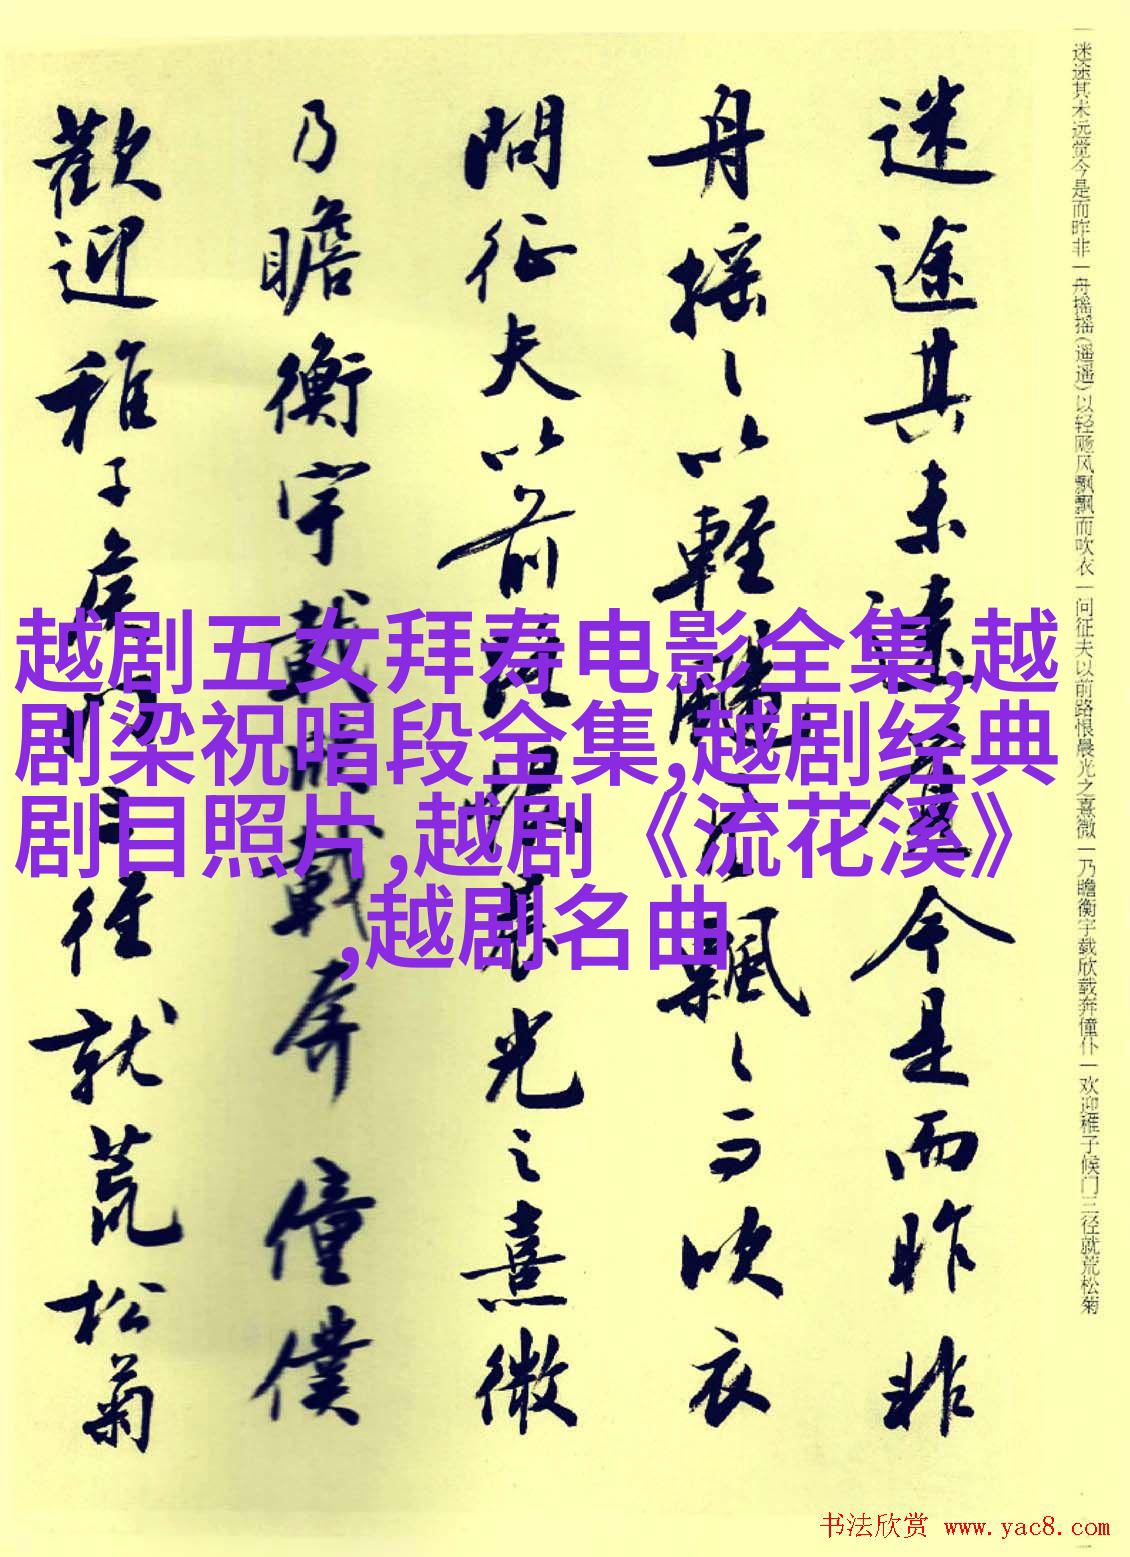 一迷途其未远觉今是而昨非一舟摇摇(遥遥)以轻飏风飘飘而吹衣一问征夫以前路恨晨光之熹微一乃瞻衡宇载欣载奔僮仆一欢迎稚子候门三径就荒松菊
迷途其未遠覺今是而昨非
舟摇〻以輕颺風飄〻而吹衣
問征夫以前路恨晨光之熹微
乃瞻衡宇載欣載奔僮僕
歡迎稚子候門三徑就荒松菊
越剧五女拜寿电影全集,越
剧梁祝唱段全集,越剧经典
剧目照片,越剧《流花溪》
,越剧名曲
书法欣赏 www.yac8.com